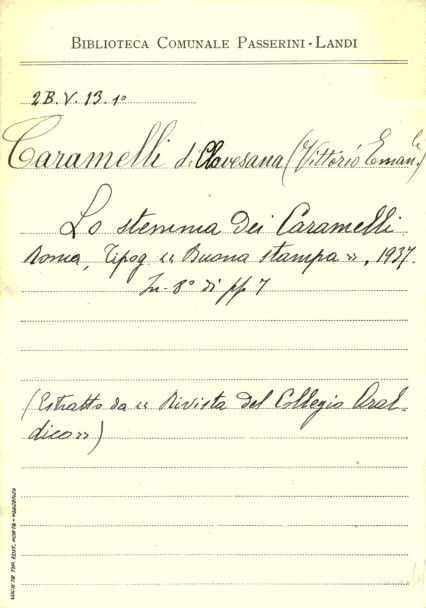 BIBLIOTECA COMUNALE PASSERINI-LANDI
2B.V.13.1º
Caramelli di Clavesana (Vittorio Emanle)
Lo stemma dei Caramelli
Roma, Tipog. "Buona stampa", 1937.
In-8º di pp. 7
(Estratto da "Rivista del Collegio Aral-
dico")
SOCIETÀ TIP. EDIT. PORTA - PIACENZA